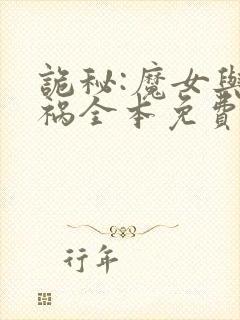 詭秘:魔女與
禍全本免費
行年